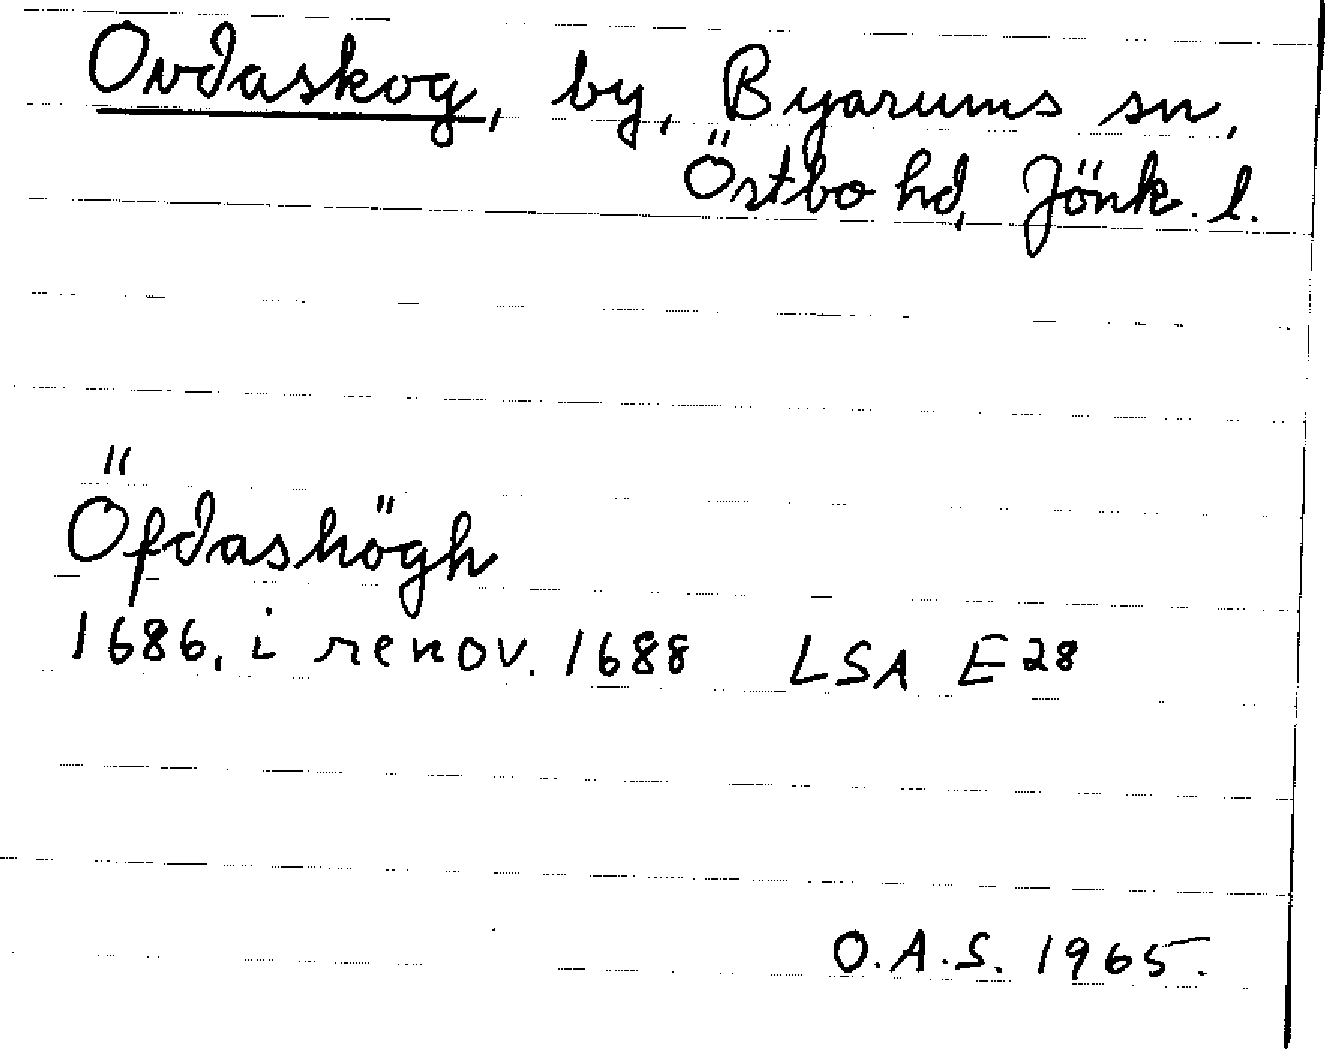 Ovdaskog, by, Byarums sn,
Östbo hd, Jönk. l.
Öfdashögh
1686, i renov. 1688 LSA E 28
O.A.S. 1965.